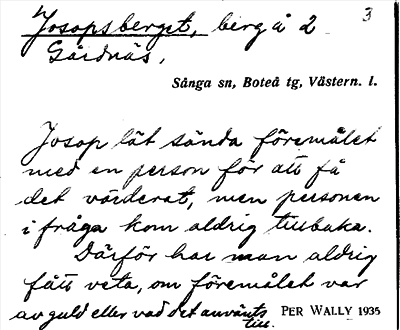 Josopsberget, berg å 2 3
Gårdnäs,
Sånga sn, Boteå tg, Västern. l.
Josop lät sända föremålet
med en person för att få
det värderat, men personen
i fråga kom aldrig tillbaka.
Därför har man aldrig
fått veta, om föremålet var
av guld eller vad det använts
till. PER WALLY 1935